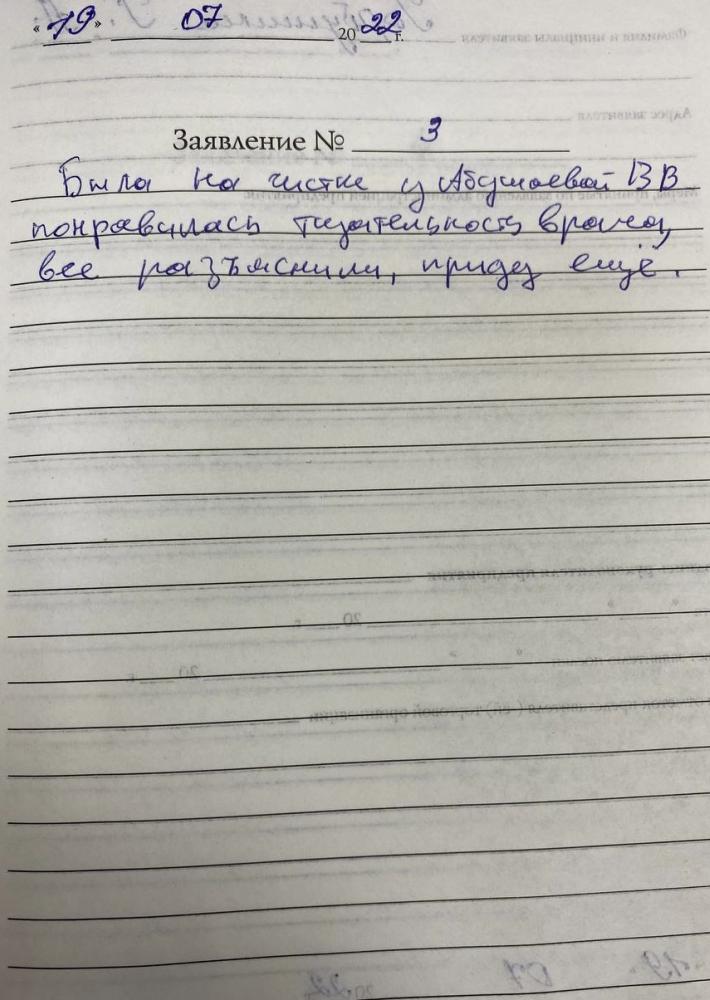 «19» 07 2022 г.
Заявление № 3
Была на чистке у Абушаевой В В
понравилась тщательность врача,
все разъяснили, приду ещё.